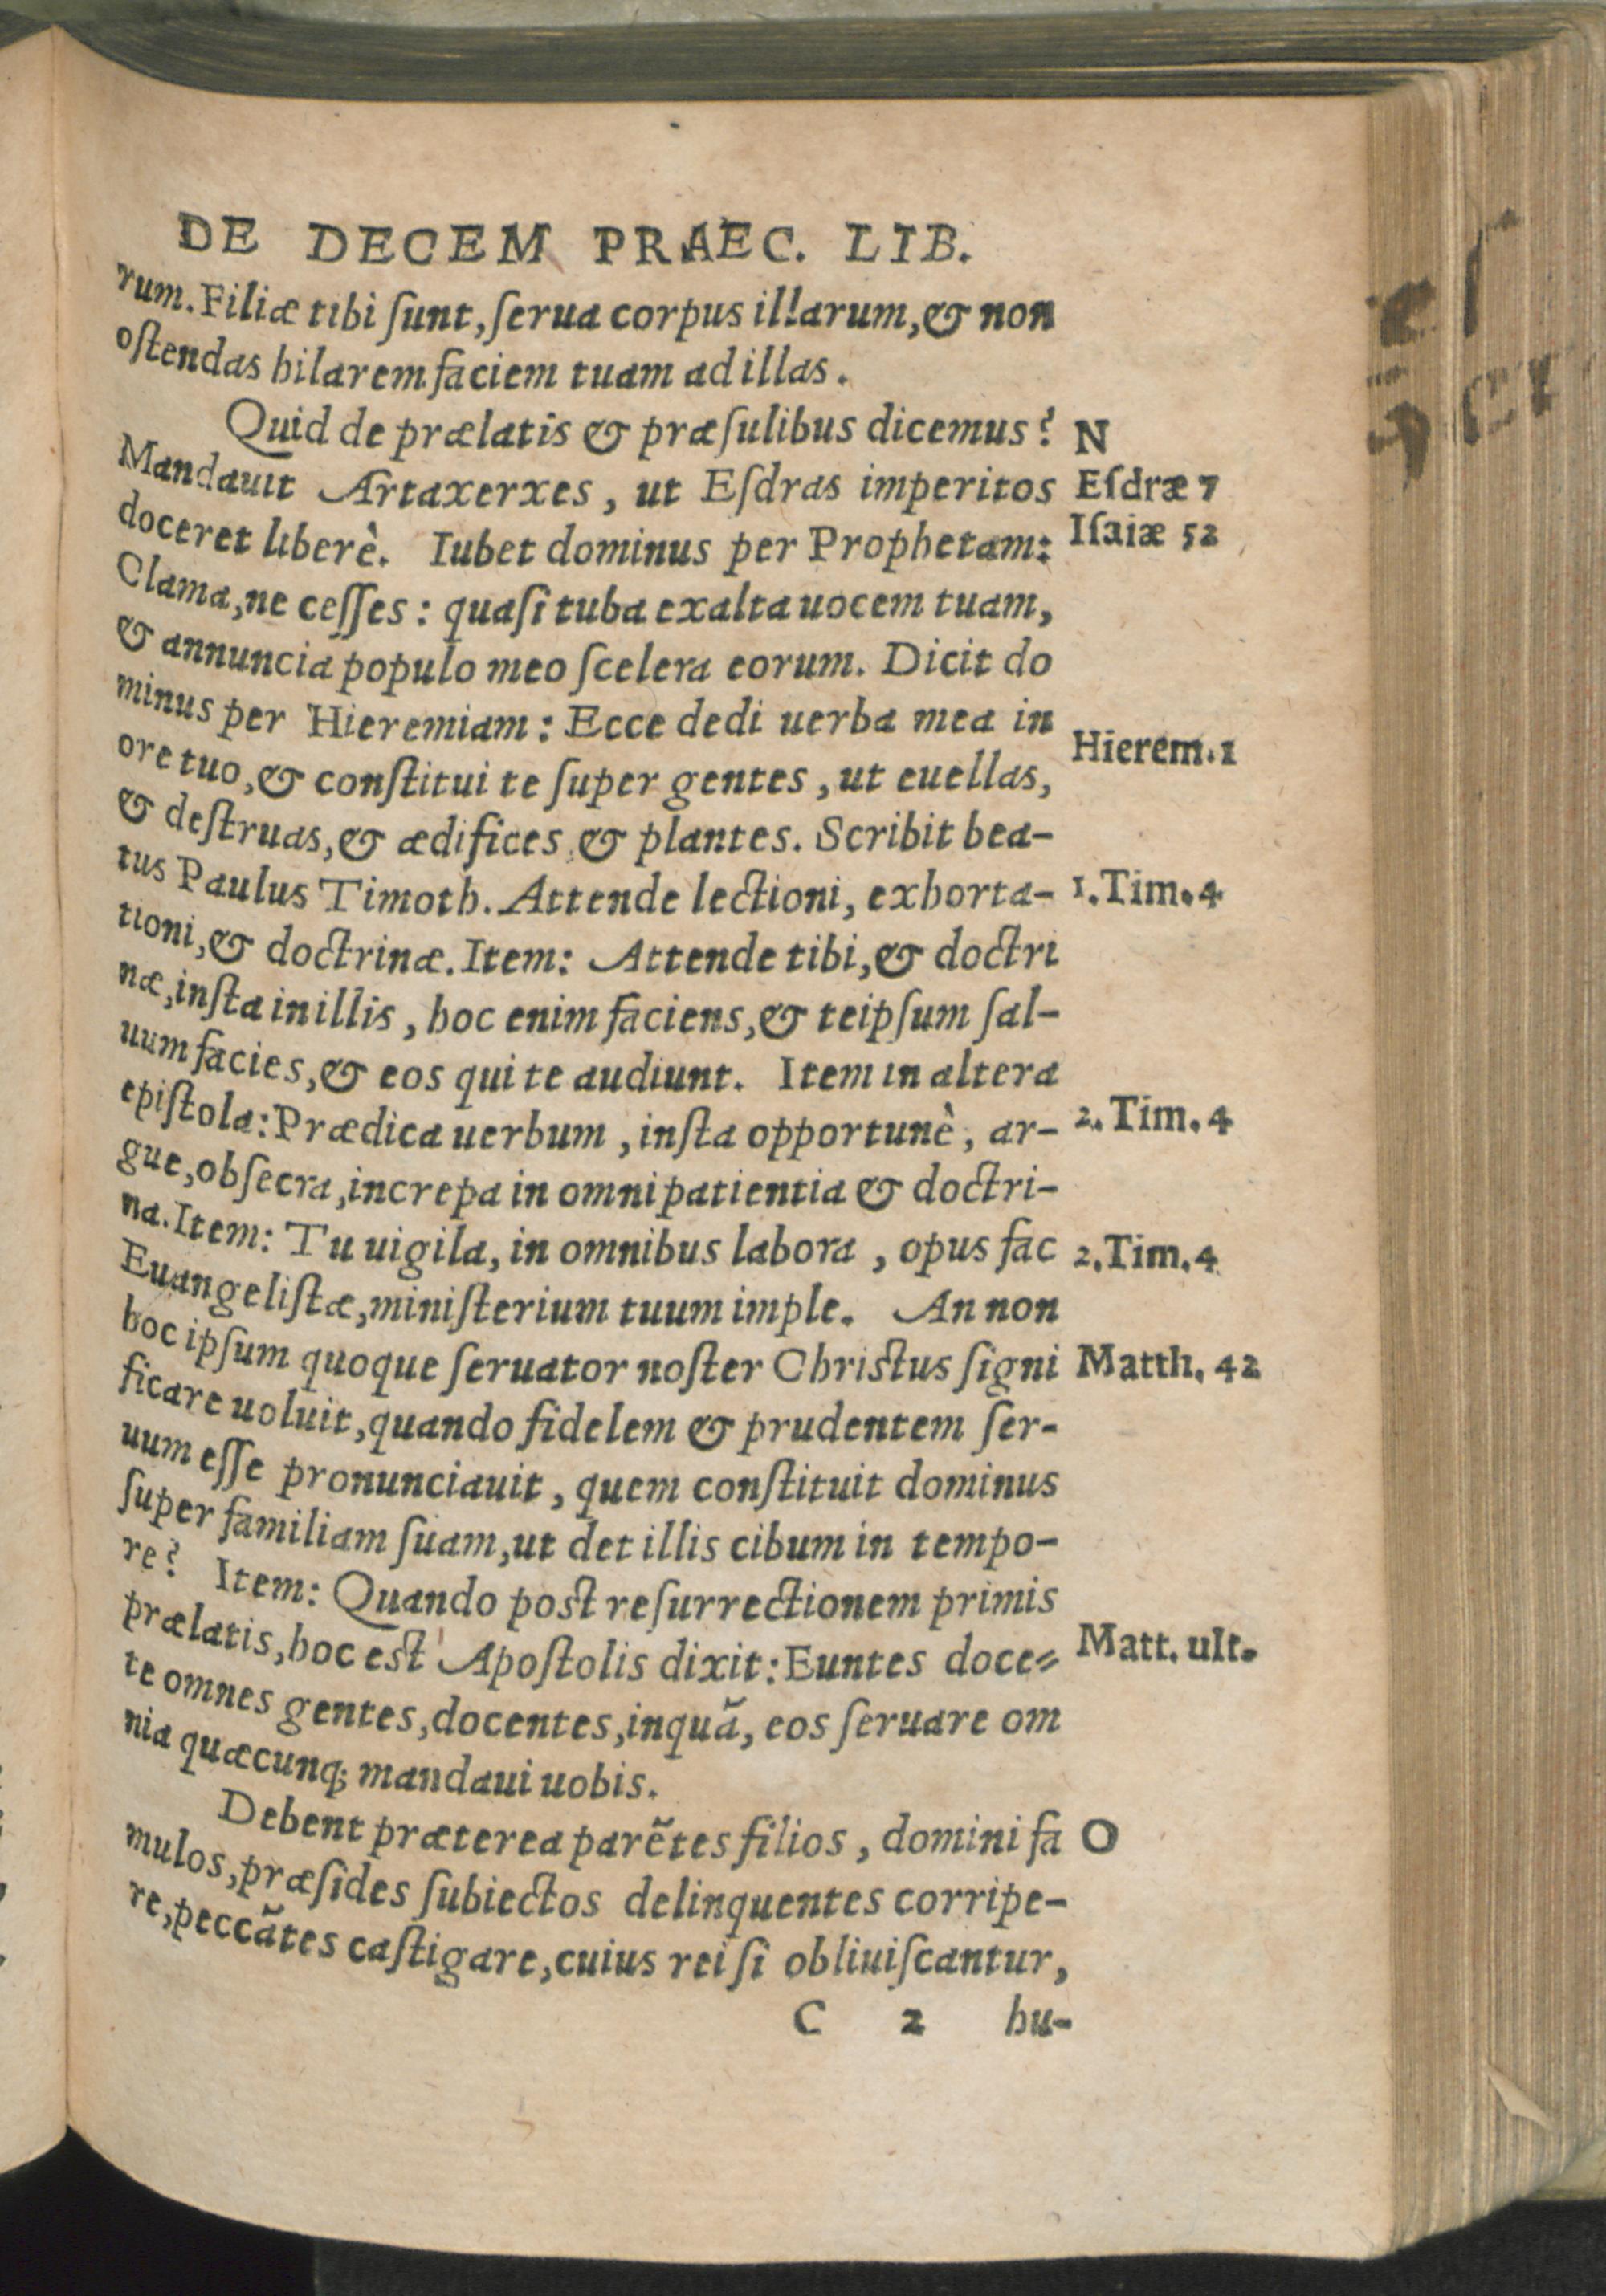 DE DECEM PRAEC. LIB.
rum. Filiæ tibi ſunt, ſerua corpus illarum, & non
oſtendas hilarem faciem tuam ad illas.
Quid de prælatis & præſulibus dicemus? N
Mandauit Artaxerxes, ut Eſdras imperitos Eſdræ 7
doceret liberè. Iubet dominus per Prophetam: Iſaiæ 52
Clama, ne ceſſes: quaſi tuba exalta uocem tuam,
& annuncia populo meo ſcelera eorum. Dicit do
minus per Hieremiam: Ecce dedi uerba mea in Hierem. 1
ore tuo, & conſtitui te ſuper gentes, ut euellas,
& deſtruas, & ædifices & plantes. Scribit bea-
tus Paulus Timoth. Attende lectioni, exhorta- 1. Tim. 4
tioni, & doctrinæ. Item: Attende tibi, & doctri
næ, inſta in illis, hoc enim faciens, & teipſum ſal-
uum facies, & eos qui te audiunt. Item in altera
epiſtola: Prædica uerbum, inſta opportunè, ar- 2. Tim. 4
gue, obſecra, increpa in omni patientia & doctri-
na. Item: Tu uigila, in omnibus labora, opus fac 2. Tim. 4
Euangeliſtæ, miniſterium tuum imple. An non
hoc ipſum quoque ſeruator noſter Chriſtus ſigni Matth. 42
ficare uoluit, quando fidelem & prudentem ſer-
uum eſſe pronunciauit, quem conſtituit dominus
ſuper familiam ſuam, ut det illis cibum in tempo-
re? Item: Quando poſt reſurrectionem primis
prælatis, hoc eſt Apoſtolis dixit: Euntes doce= Matt. ult.
te omnes gentes, docentes, inquã, eos ſeruare om
nia quæcunq; mandaui uobis.
Debent præterea parẽtes filios, domini fa O
mulos, præſides ſubiectos delinquentes corripe-
re, peccãtes caſtigare, cuius rei ſi obliuiſcantur,
C 2 hu-